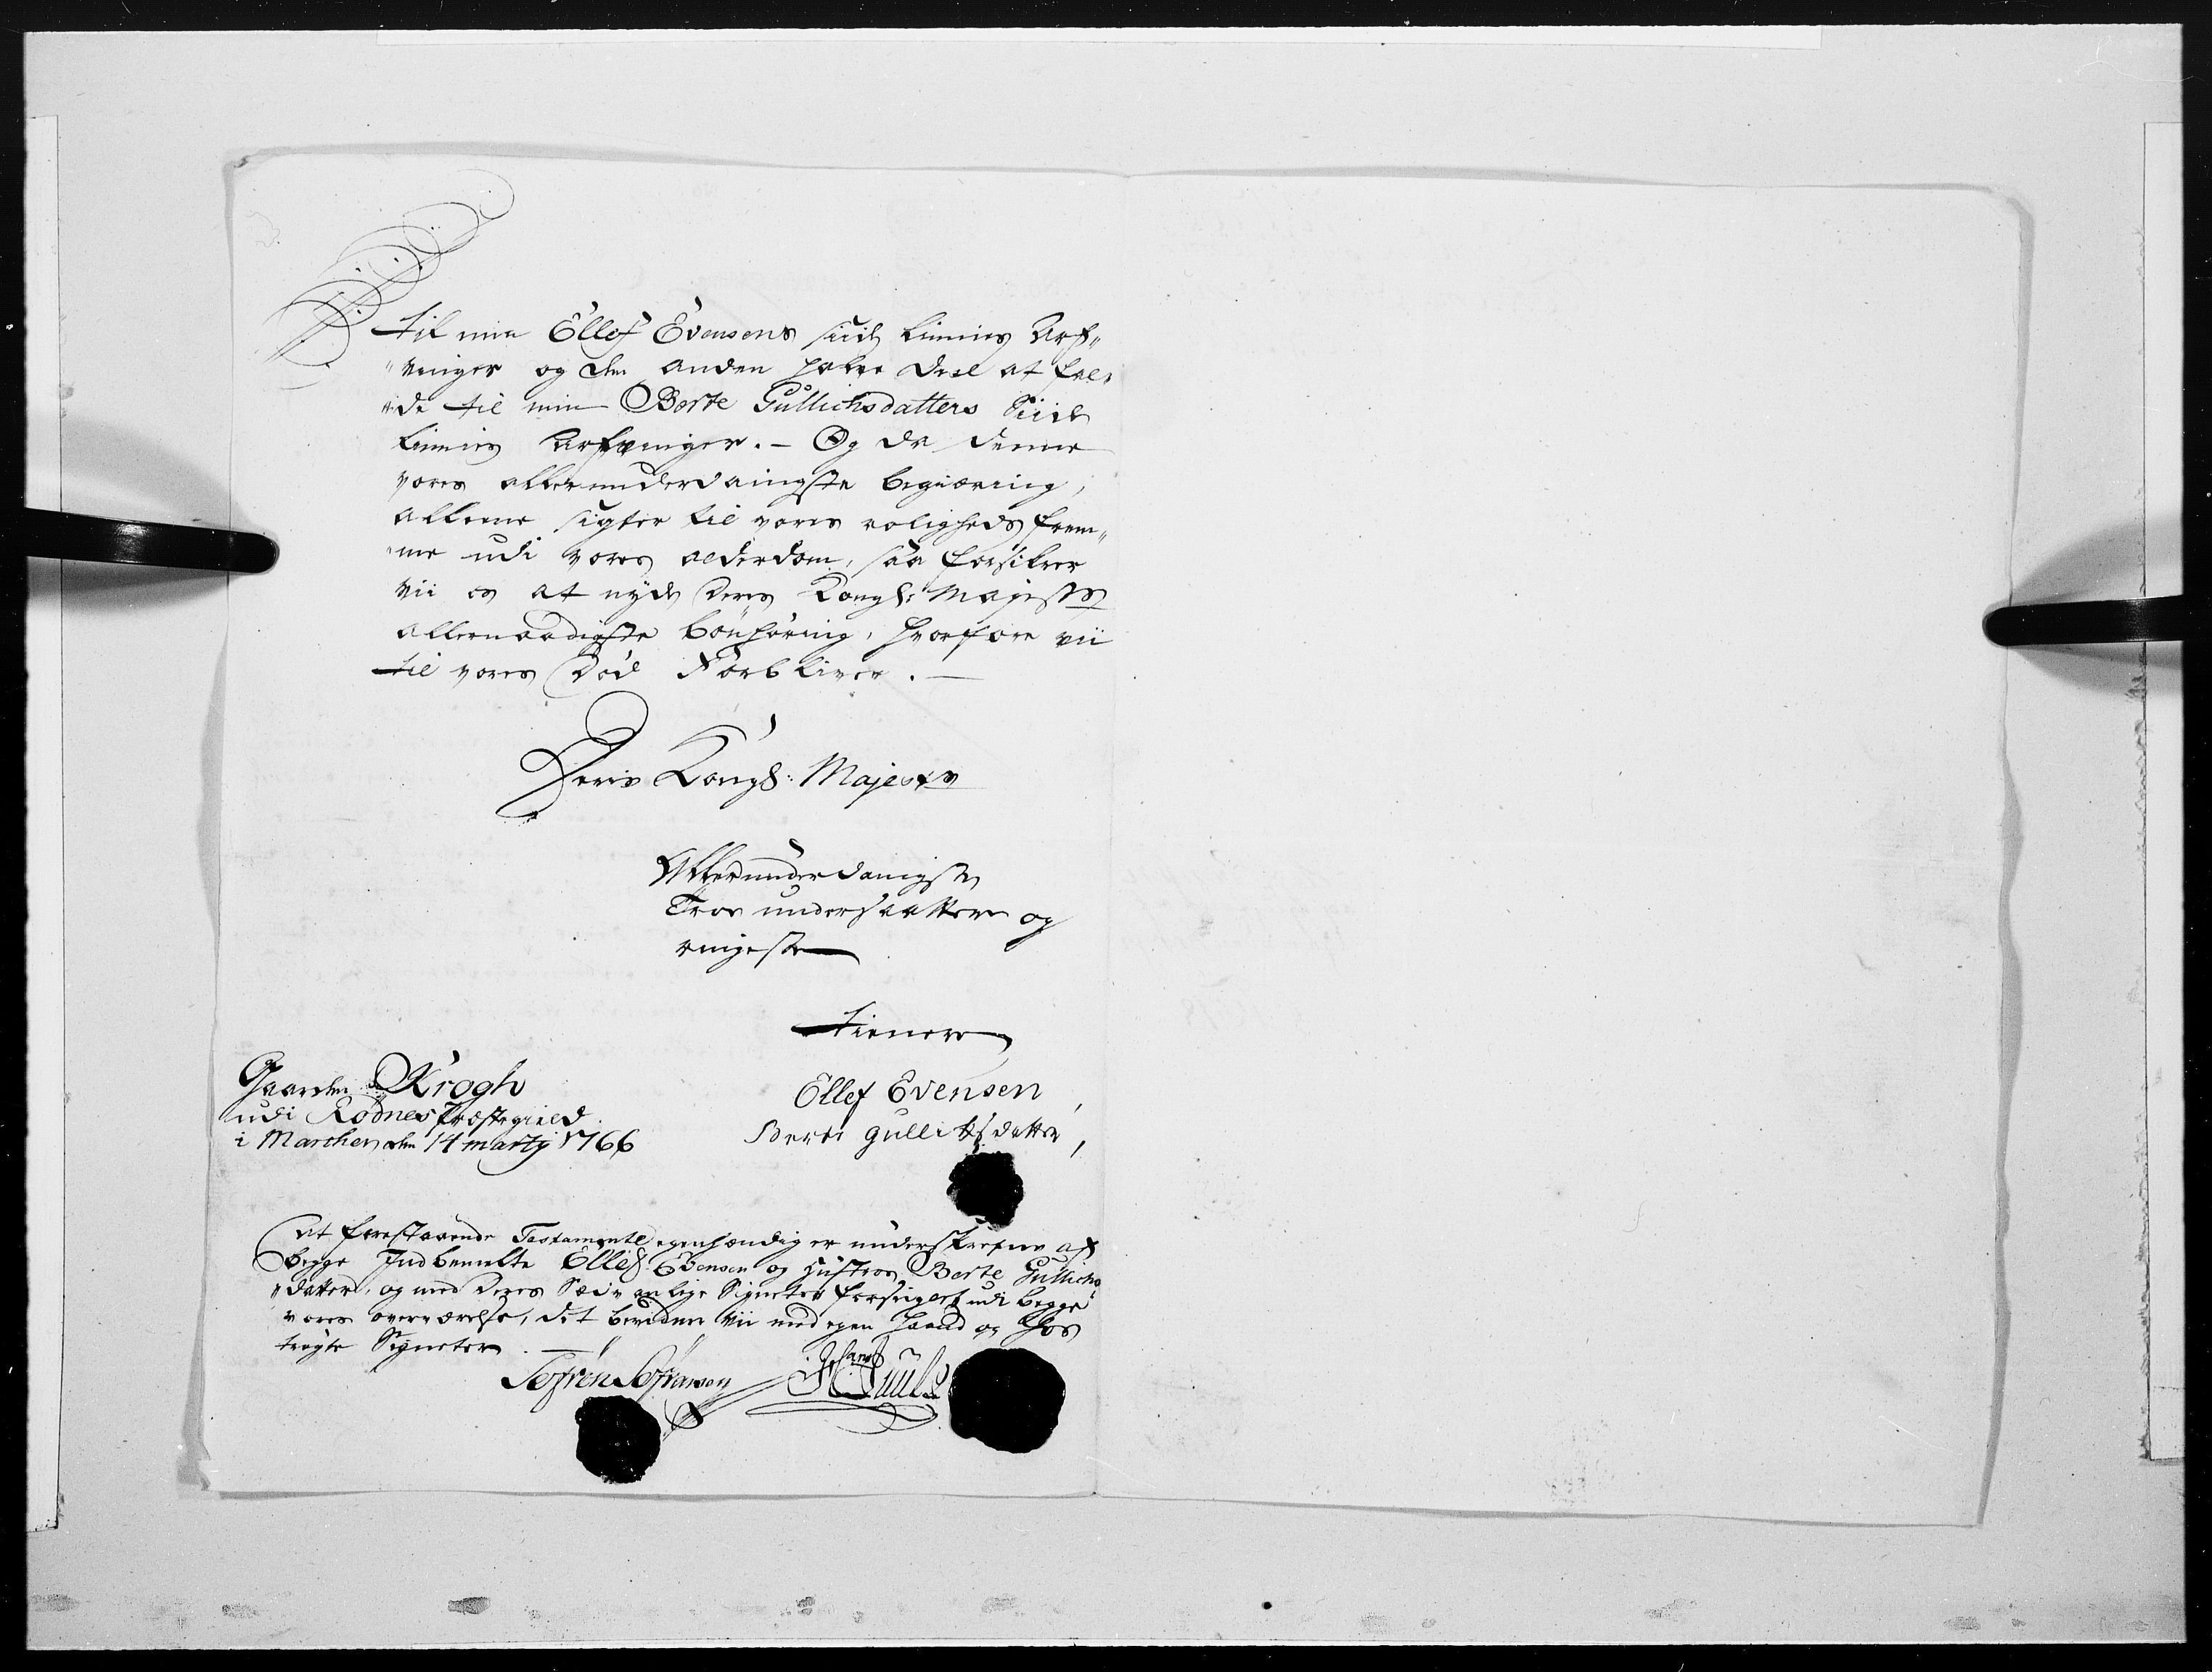 til min Ellef Evensens siide Linnies Arf„
„vinger og den anden halve deel at fal„
„de til min Berte Gullichsdatters Siide
Linnies Arfvinger. – Og da denne
vores allerunderdanigste begiæring,
alleene sigter til vores roligheds frem„
„me udi vores alderdom, saa forsikrer
vii os at nyde Deres Kongl: Majestts
allernaadigste bönhöring, hvorfore vii
til vores Död Forbliver. –
Deris Kongl: Majestts
Allerunderdanigste
Troe undersaattere og
ringeste
tienere
Gaarden Krogh
udi Rödnes Præstegield
i Marchen den 14 marty 1766
Ellef Evensen
Berte Gulliksdatter
At forestaaende Testamente egenhændig er underskrefne af
begge Indbemelte Ellef Evensen og Hustroe Berte Gullichs
„datter, og med Deres Sædvanlige Signeter forseiglet udi begge
vores overværelse, det bevidner vii med egen Haand og hos
trögte Signeter. –
Sefren Sefrensen
Juul